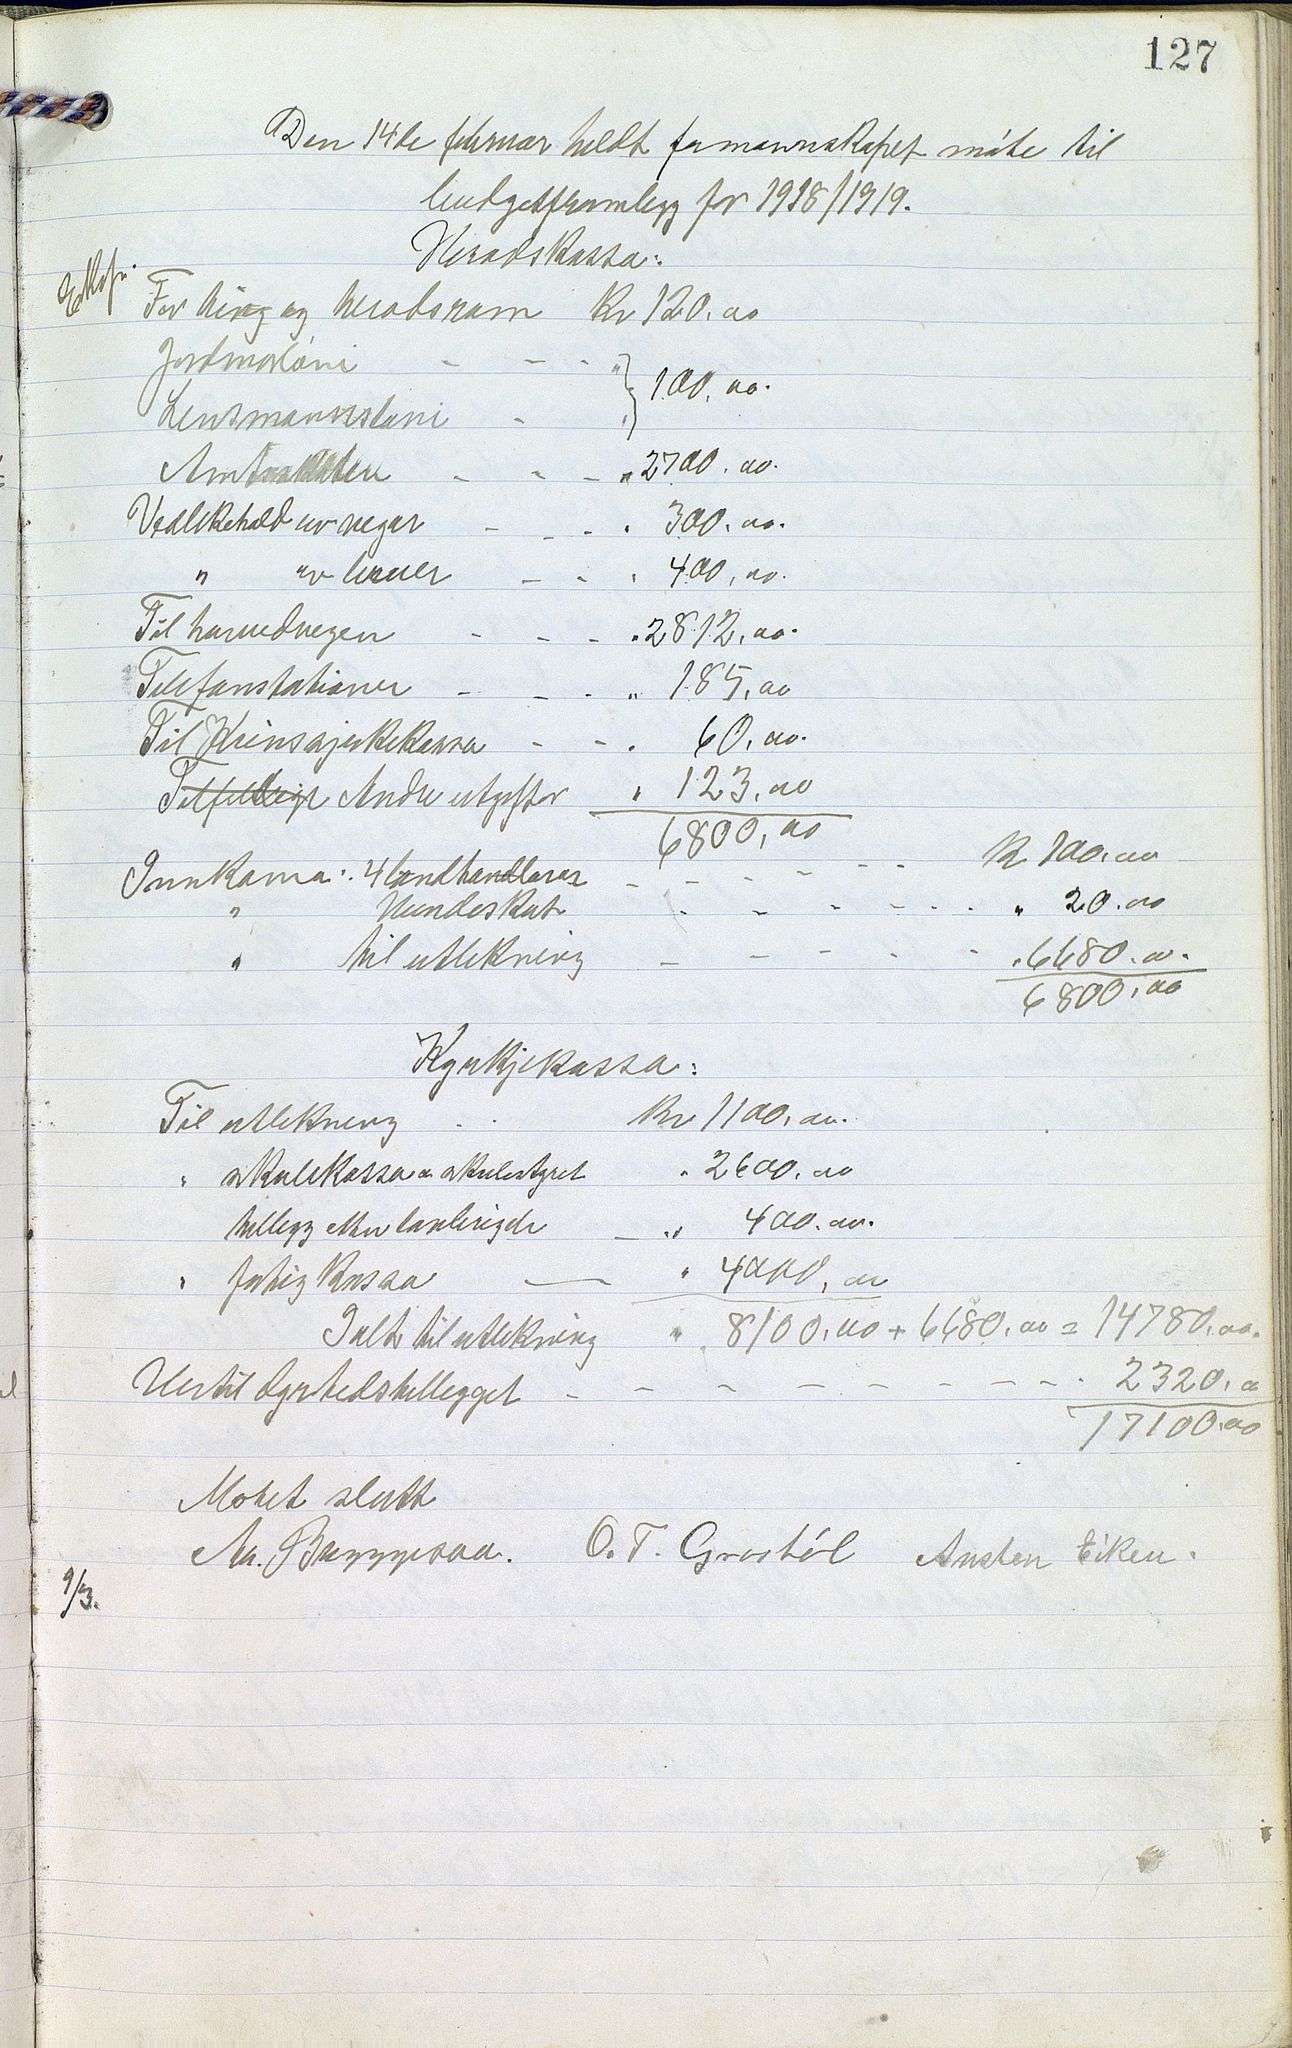 127
Den 14de februar heldt formannskapet møte til
budgetframlegg for 1918/1919.
Heradskassa:
For ting og heradsrom Kr 120,00
Jordmorløni - - - "
Lensmannsløni - " } 100,00.
Amtsskatten - - - " 2700.00.
Vedlikehald av vegar - - - " 300,00.
" av bruer - - " 400,00.
Til hovedvegen - - - " 2812,00.
Telefonstationer - - - " 185,00
Til Krinssjukekassa - - " 60,00.
Tilfellige Andre utgifter " 123,00
6800,00
Innkoma: 4 landhandlarar - - - - - - Kr 100,00
" Hundeskat - - - - - - " 20.00
" til utlikning - - - - - " 6680.00.
6800,00
Kyrkjekassa:
Til utlikning - - Kr 1100,00.
" skulekassa a skulestyret " 2600,00
tillegg etter lovbrigde - " 400.00.
" fatig kassa - " 4000,00
Ialt til utlikning " 8100,00 + 6680,00 = 14780,00.
Hertil dyrtidstillegget - - - - - - - - - 2320,00
17100,00
Møtet slutt
Aa. Bryggesaa. O. T. Grostøl Austen Eiken.
9/3.